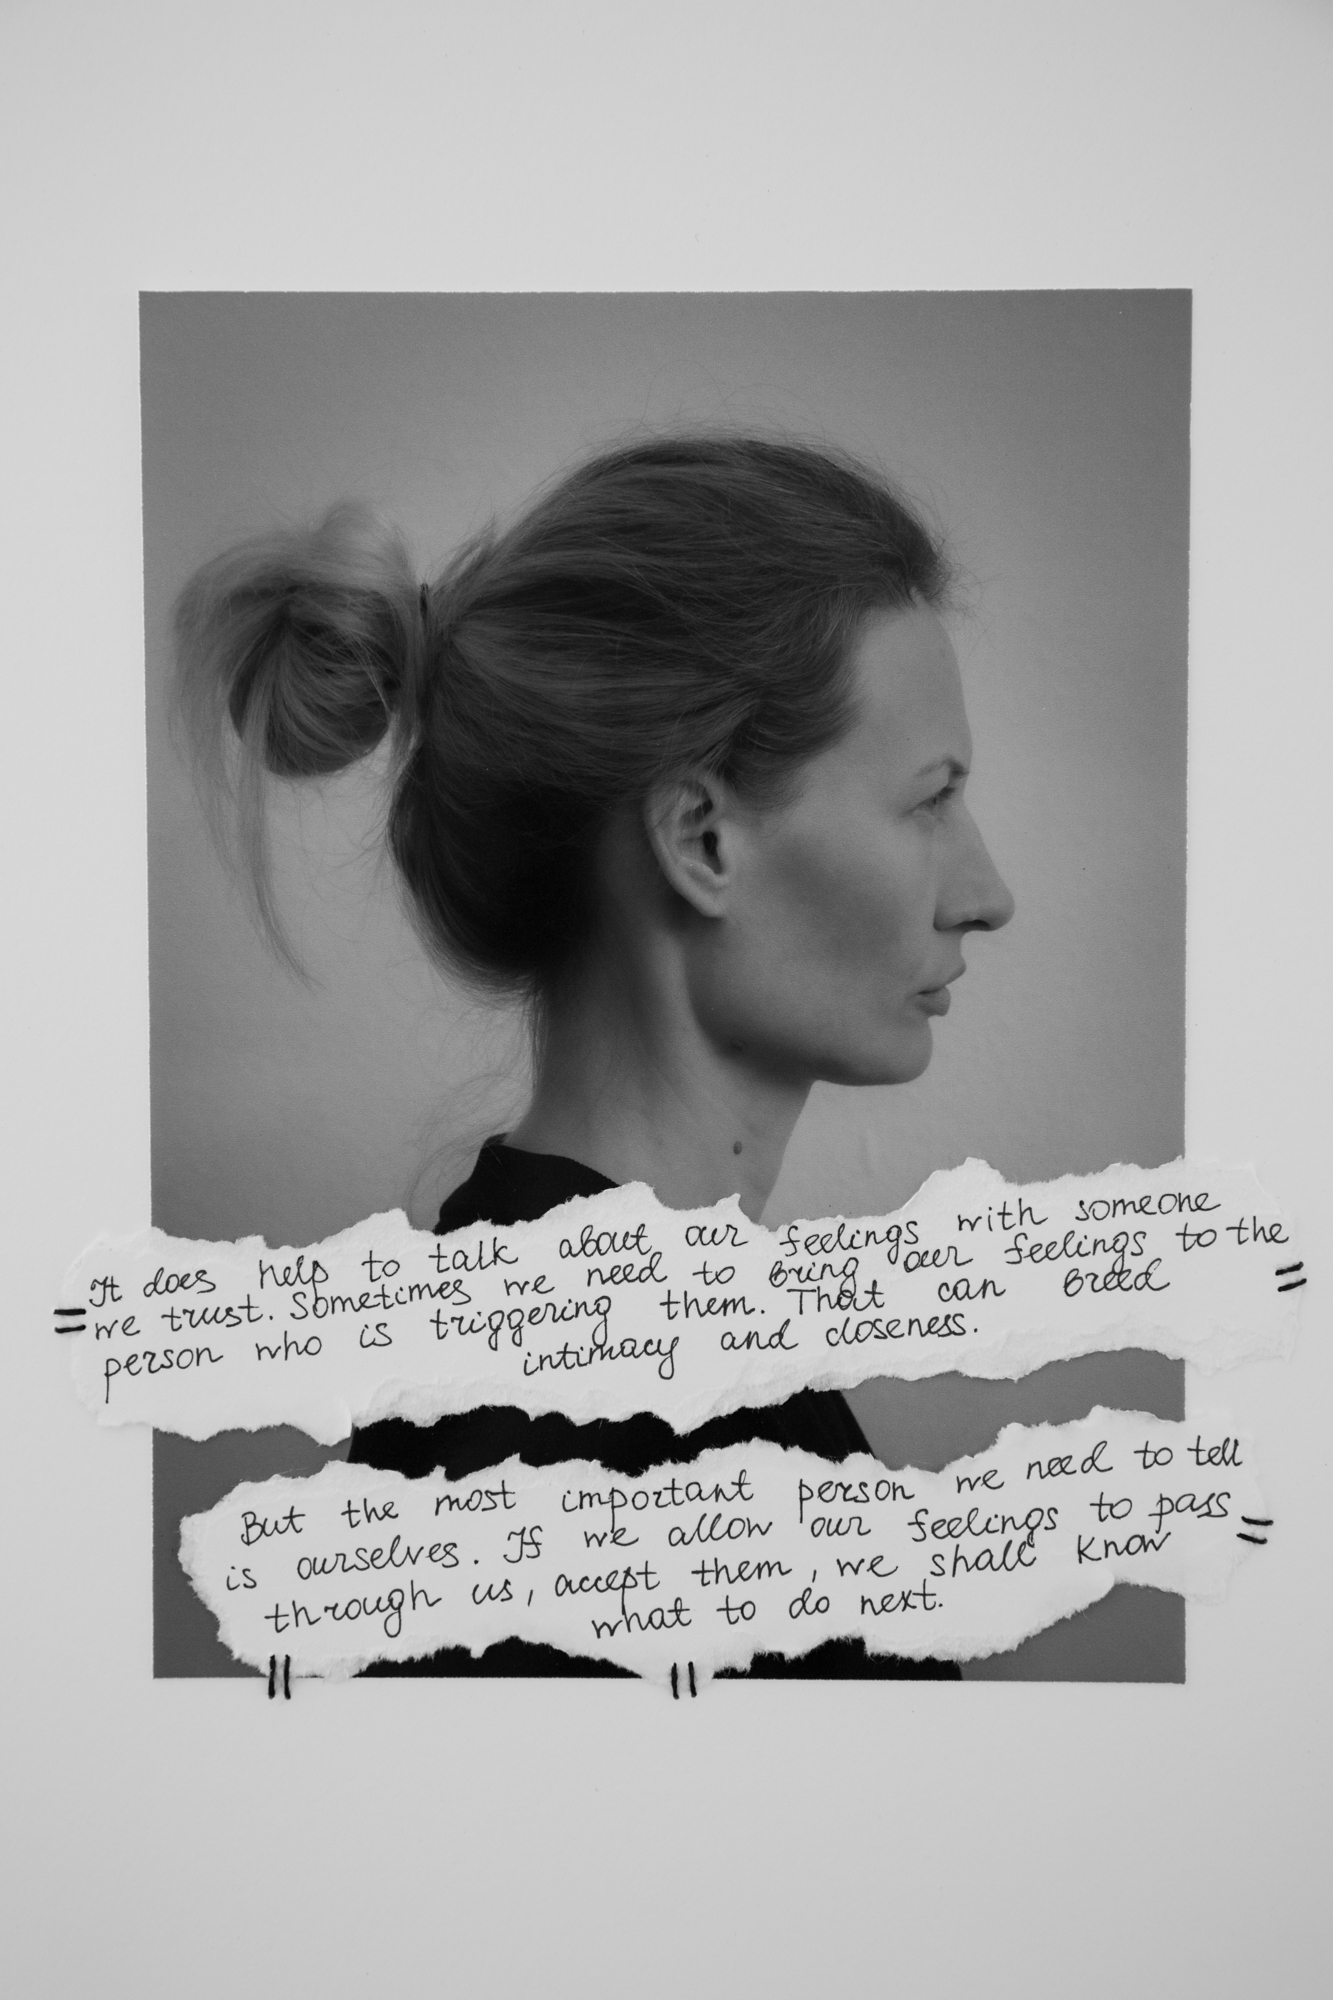 It does help to talk about our feelings with someone
we trust. Sometimes we need to bring our feelings to the
person who is triggering them. That can breed
intimacy and closeness.
But the most important person we need to tell
is ourselves. If we allow our feelings to pass
through us, accept them, we shall know
what to do next.